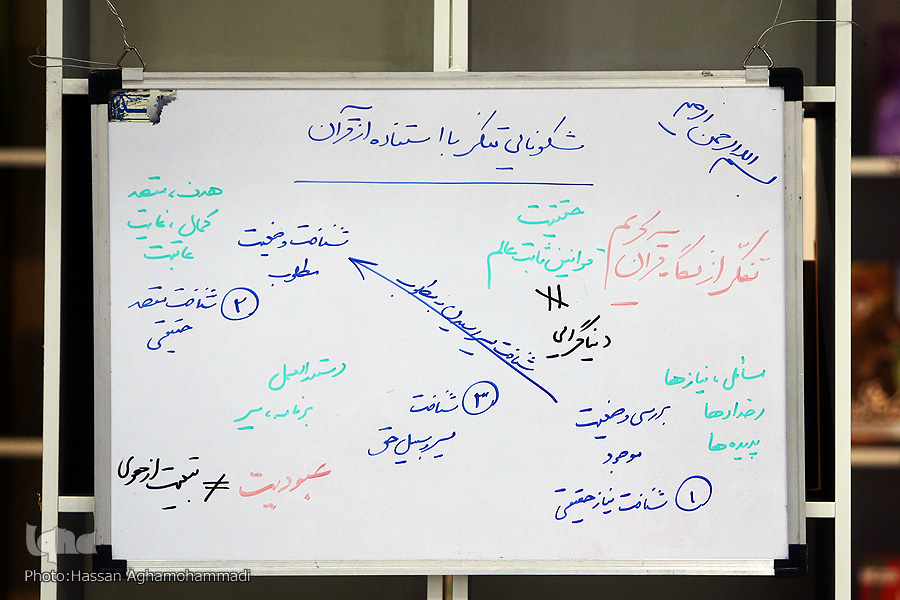 بسم الله الرحمن الرحیم
شکوفایی تفکر با استفاده از قرآن
تفکّر از نگاه قرآن کریم
حقیقت
قوانین ثابت عالم
≠
دنیاگرایی
شناخت وضعیت
مطلوب
هدف، مقصد
کمال، غایت
عاقبت
۲ شناخت مقصد
حقیقی
شناخت مسیر رسیدن به مطلوب
مسائل، نیازها
رخدادها
پدیده‌ها
بررسی وضعیت
موجود
۱ شناخت نیاز حقیقی
۳ شناخت
مسیر و سبیل حق
دستورالعمل
برنامه، سیر
عبودیت ≠ تبعیت از هوی
iqna
Photo:Hassan Aghamohammadi